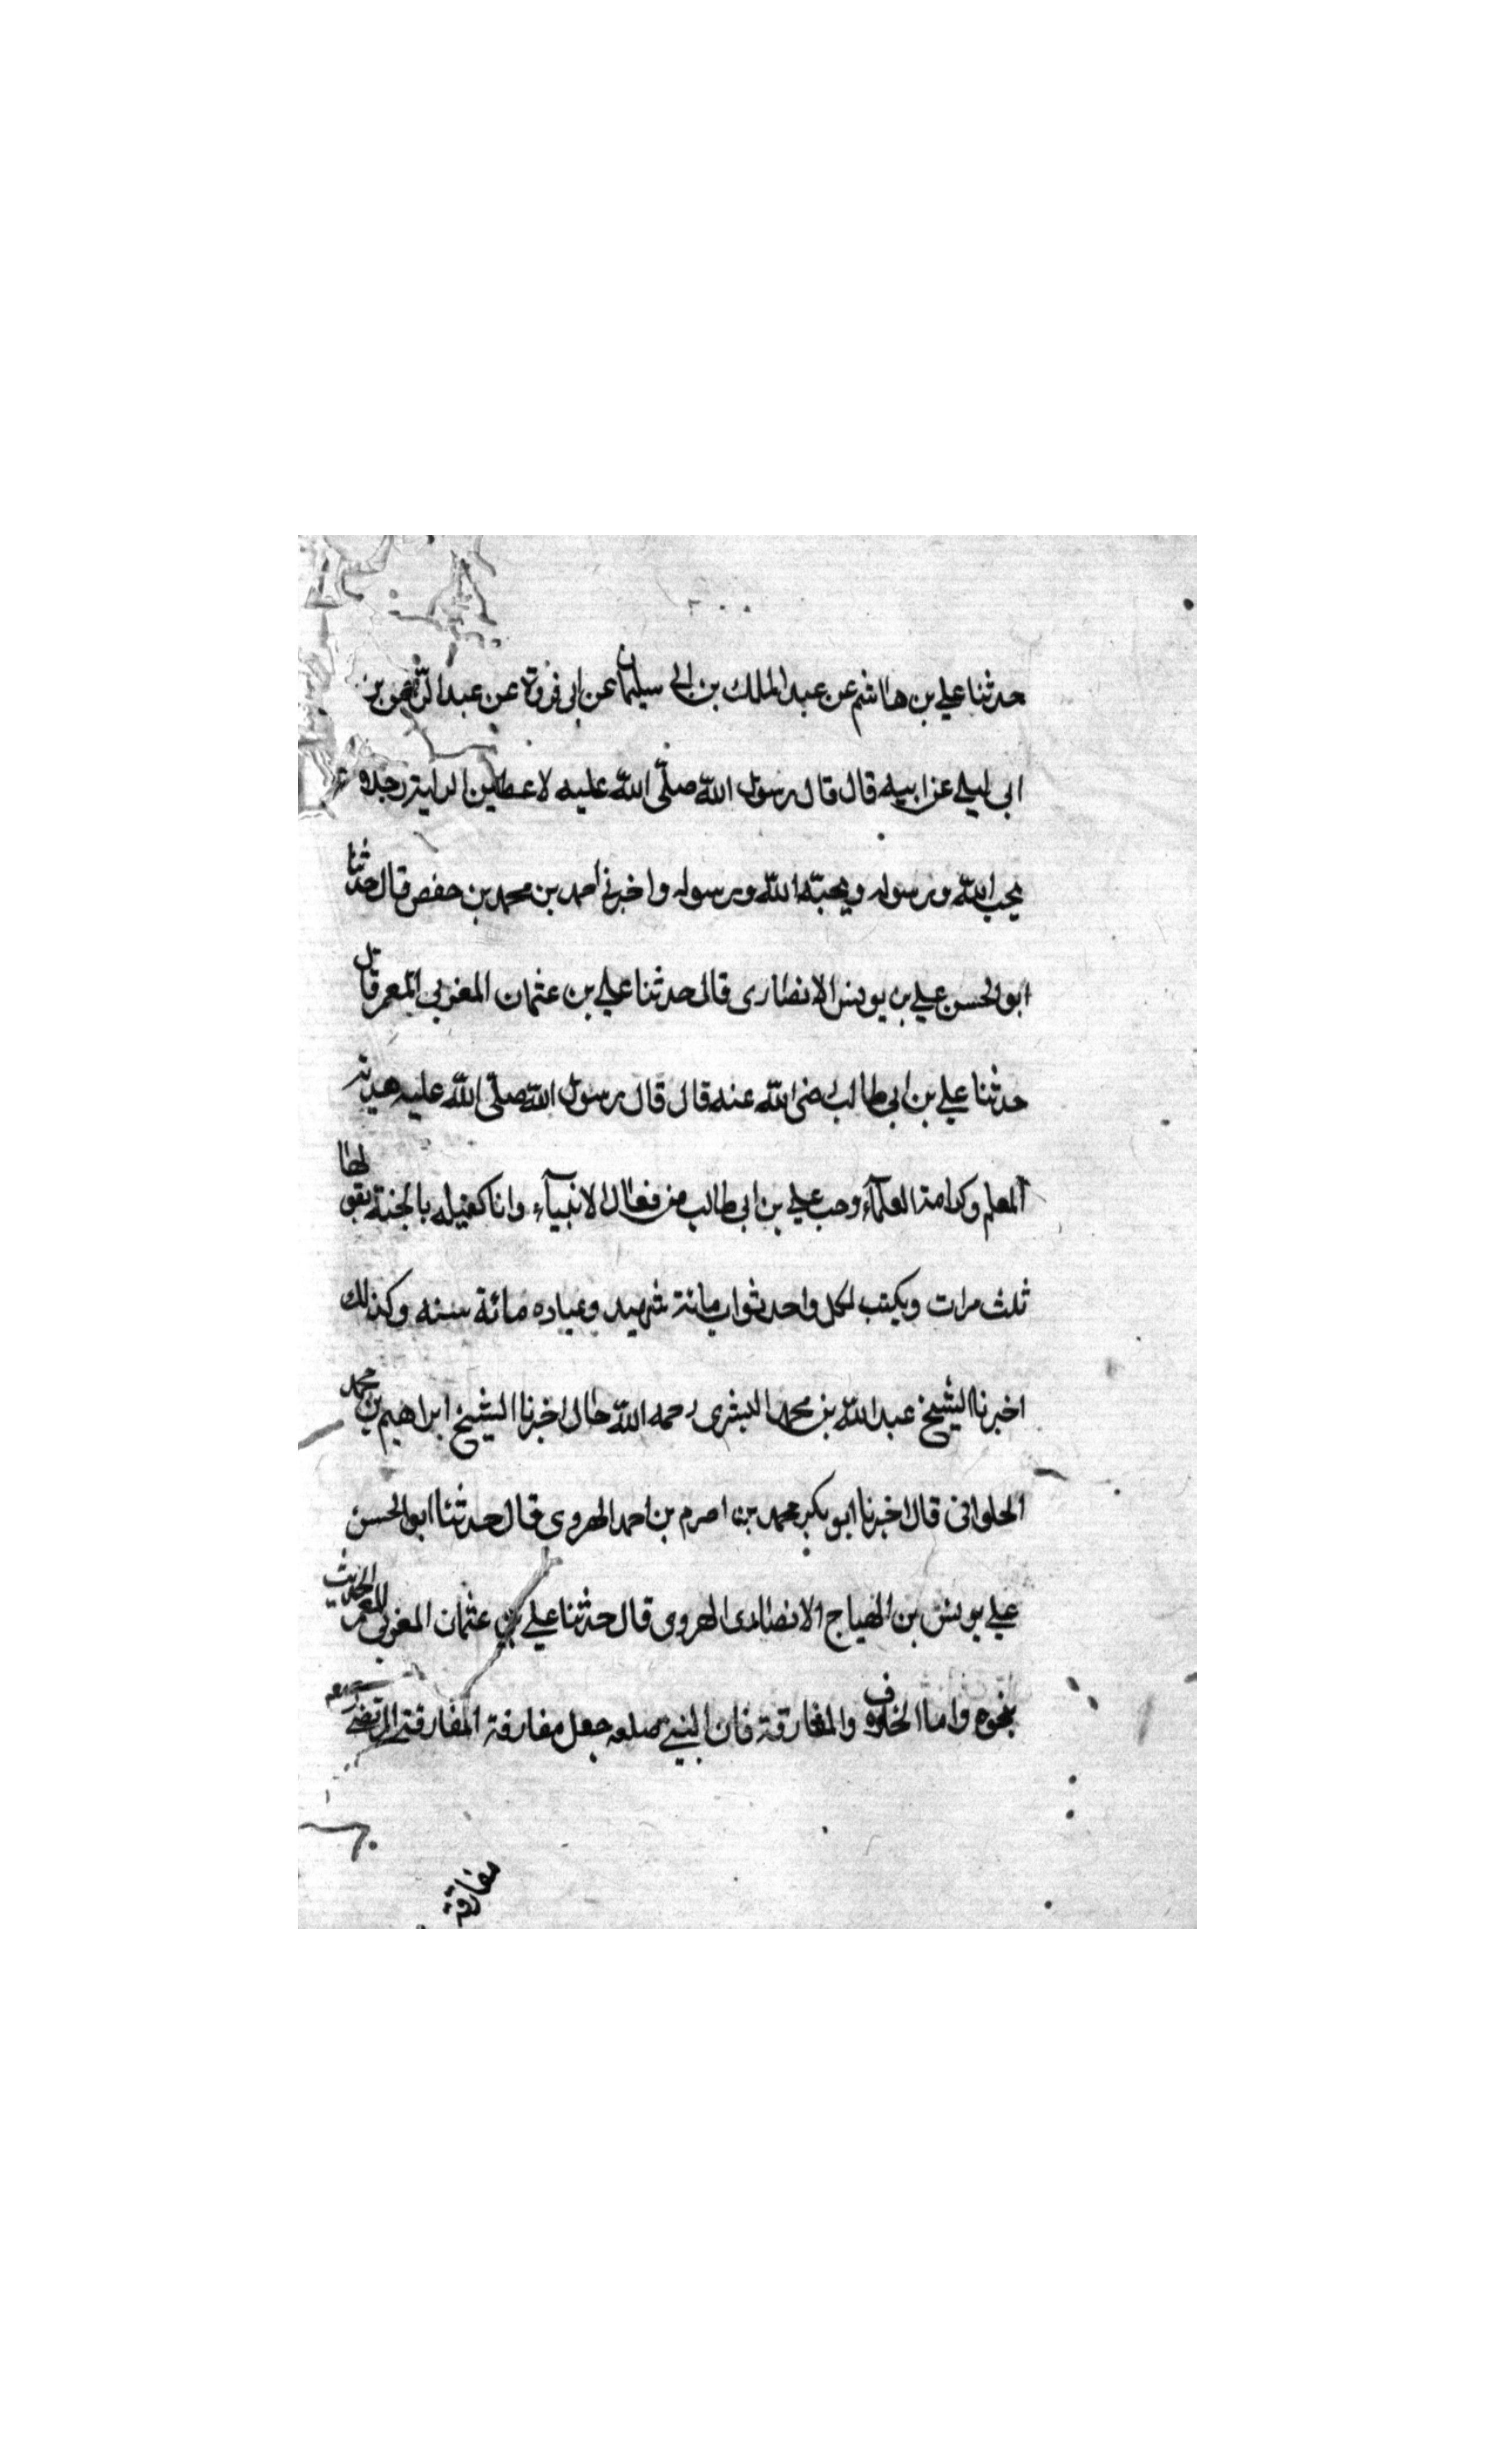 حدثنا علي بن هاشم عن عبد الملك بن ابي سليمان عن ابي فروة عن عبد الرحمن بن
ابي ليلى عن ابيه قال قال رسول الله صلّى الله عليه لاعطين الراية رجلا
يحب الله ورسوله ويحبّه الله ورسوله واخبرني احمد بن محمد بن حفص قال حدثنا
ابو الحسن علي بن يونس الانصارى قال حدثنا علي بن عثمان المغربي المعمر قال
حدثنا علي بن ابي طالب رضى الله عنه قال قال رسول الله صلّى الله عليه هدية
المعلم وكرامة العلمآء وحب علي بن ابي طالب من فعال الانبيآء وانا كفيله بالجنة يقولها
ثلث مرات ويكتب لكل واحد ثواب مائة شهيد وعباده مائة سنه وكذلك
اخبرنا الشيخ عبد الله بن محمد البشرى رحمه الله قال اخبرنا الشيخ ابراهيم بن محمد
الحلوانى قال اخبرنا ابو بكر محمد بن اصرم بن احمد الهروى قال حدثنا ابو الحسن
علي يونس بن الهياج الانصارى الهروى قال حدثنا علي بن عثمان المغربي المعمر الحديث
بنحوه واما الخلاف والمفارقة فان النبي صلعم جعل مفارقة المرتضى
مفارقة